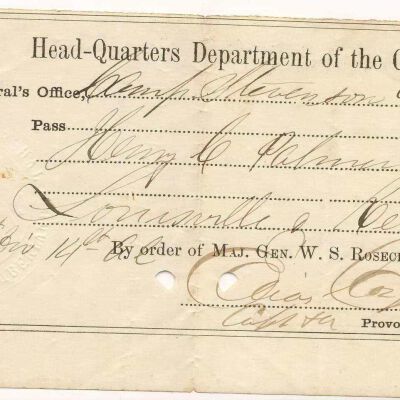 Head-Quarters Department of the C
ral's Office, Camp Stevenson
Pass Henry C Palmer
Louisville &
Div 14th A.C. By order of MAJ. GEN. W. S. ROSEC
Capt &
Provo